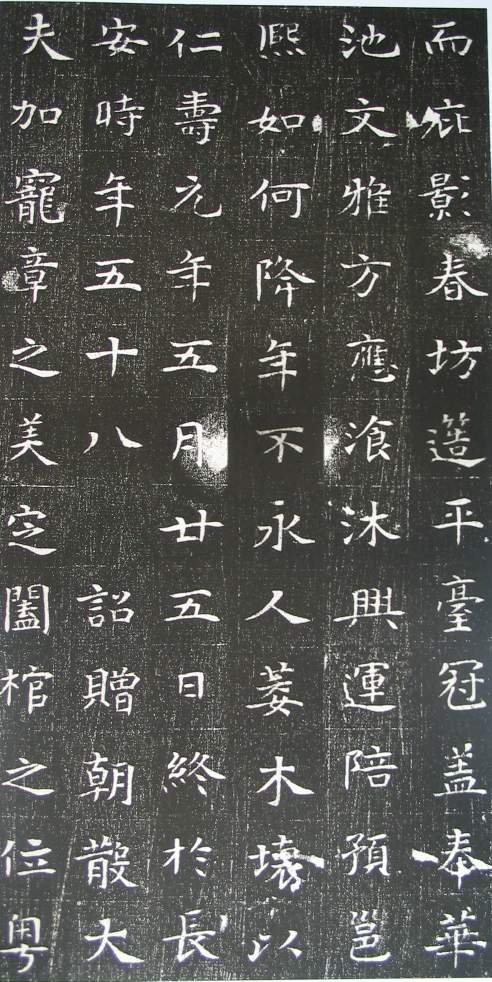 而庇影春坊簉平臺冠盖奉華
池文雅方應湌沐興運陪預邕
熙如何降年不永人萎木壞以
仁壽元年五月廿五日終於長
安時年五十八 詔贈朝散大
夫加寵章之美定闔棺之位粤